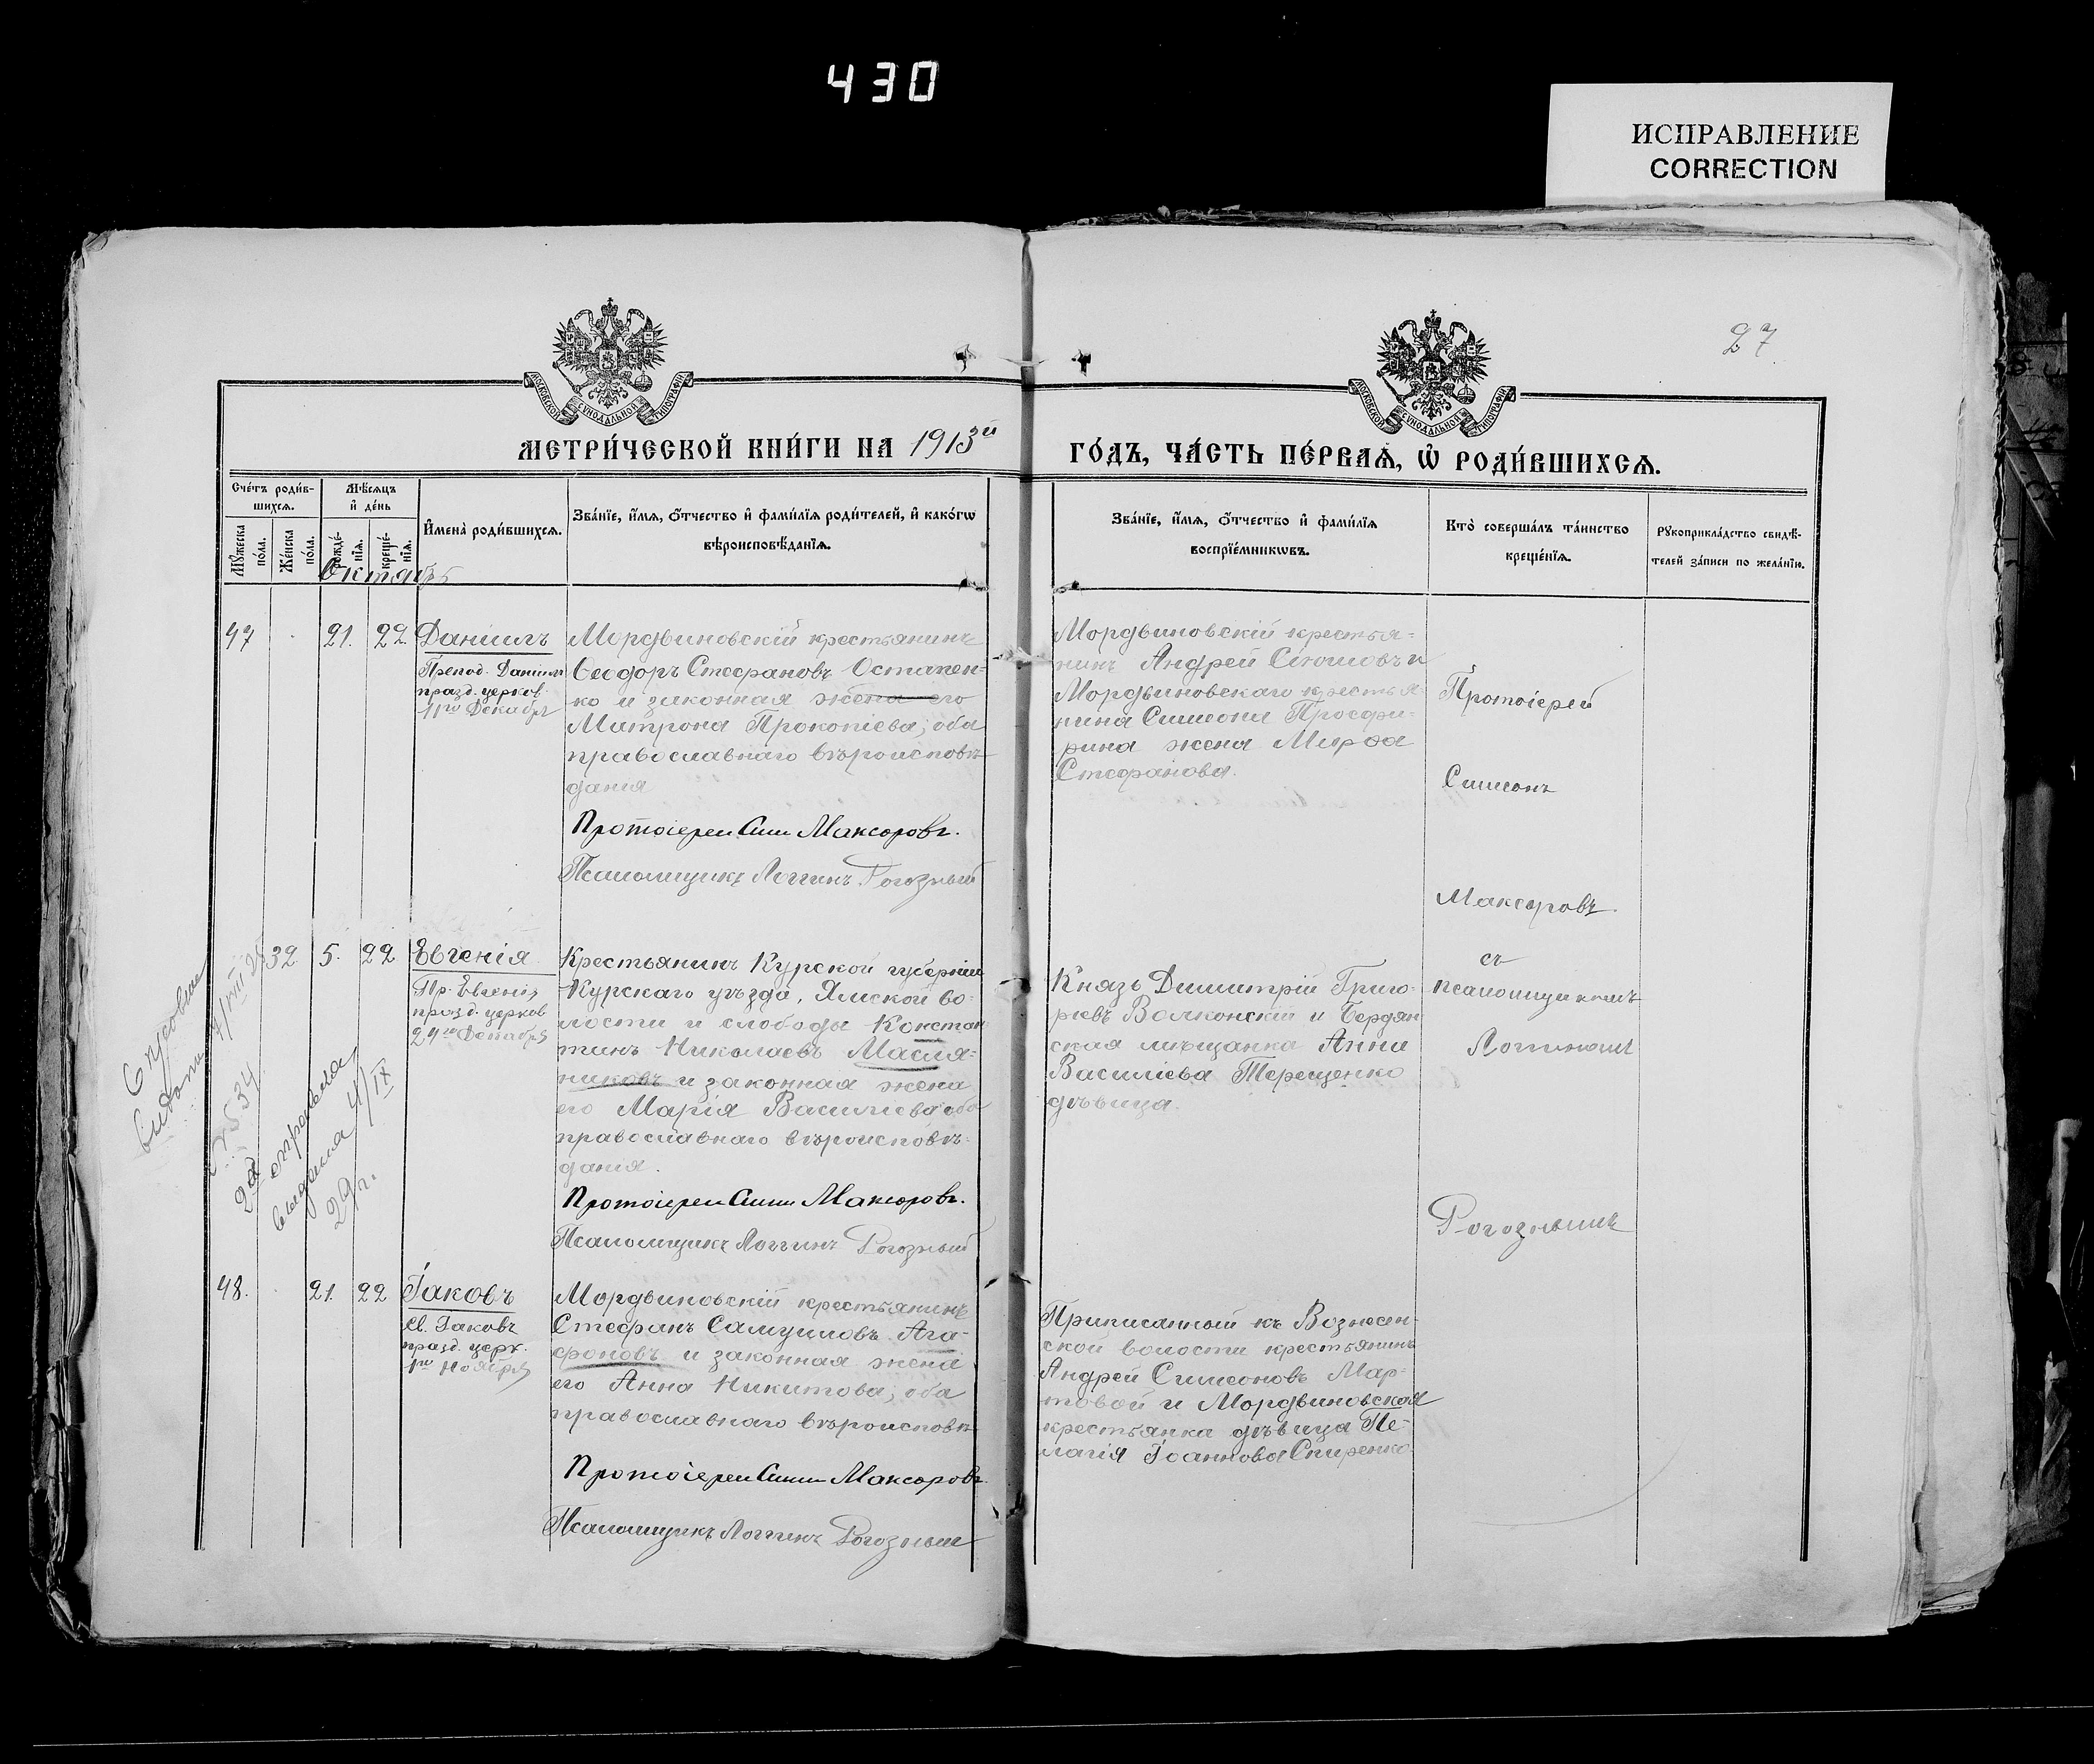 430
ИСПРАВЛЕНИЕ
CORRECTION
27
МОСКОВСКОЙ СѴНОДАЛЬНОЙ ТИПОГРАФІИ
МОСКОВСКОЙ СѴНОДАЛЬНОЙ ТИПОГРАФІИ
МЕТРИ́ЧЕСКОЙ КНИ́ГИ НА 1913й
ГО́ДЪ, ЧА́СТЬ ПЕ́РВАѦ, Ѡ҆ РОДИ́ВШИХСѦ.
Сче́тъ роди́в-
шихсѧ.
Мꙋ́жеска
по́ла.
Же́нска
по́ла.
Мѣ́сѧцъ
и҆ де́нь
рожде́-
нїѧ.
креще́-
нїѧ.
И҆мена̀ роди́вшихсѧ.
Зва́нїе, и҆́мѧ, ѻ҆́тчество и҆ фами́лїѧ роди́телей, и҆ како́гѡ
вѣроисповѣ́данїѧ.
Зва́нїе, и҆́мѧ, ѻ҆́тчество и҆ фами́лїѧ
воспрїе́мникѡвъ.
Кто̀ соверша́лъ та́инство
креще́нїѧ.
Рꙋкоприкла́дство свидѣ́-
телей за́писи по жела́нїю.
Октябрь
47
21.
22.
Даніилъ
Препод. Даніилъ
празд. церков.
11го Декабр
Мордвиновскій крестьянинъ
Ѳеодоръ Стефановъ Остапен-
ко и законная жена его
Матрона Прокопіева; оба
православнаго вѣроисповѣ-
данія
Протоіерей Сим Максоровъ.
Псаломщикъ Логгинъ Рогозный
Мордвиновскій крестья-
нинъ Андрей и
Мордвиновскаго крестья-
нина Симеона
жена Марѳа
Стефанова.
Протоіерей
Симеонъ
Максоровъ.
съ
псаломщикомъ
Логгиномъ
Рогознымъ
32
5.
22
Евгенія
Пр. Евгенія
празд. церков
24го Декабря
Крестьянинъ Курской губерніи
Курскаго уѣзда, Ямской во-
лости и слободы Констан-
тинъ Николаевъ Масля-
никовъ и законная жена
его Марія Василіева оба
православнаго вѣроисповѣ-
данія.
Протоіерей Сим Максоровъ.
Псаломщикъ Логгинъ Рогозный
Князь Димитрій Григо-
ріевъ Волконскій и Бердян
ская мѣщанка Анна
Василіева Терещенко
дѣвица.
выдана
7/VIII 25
№ 534
2я
выдана 4/IX
29 г.
48.
21.
22
Іаковъ
Св. Іаковъ
празд. церк.
1го Ноября
Мордвиновскій крестьянинъ
Стефанъ Самуиловъ Ага-
фоновъ и законная жена
его Анна Никитова; оба
православнаго вѣроисповѣ-
Протоіерей Сим Максоровъ.
Псаломщикъ Логгинъ Рогозный
Приписанный къ Вознесен-
ской волости крестьянинъ
Андрей Симеоновъ Мар-
товой и Мордвиновская
крестьянка дѣвица Пе-
лагія Іоаннова Спиренко